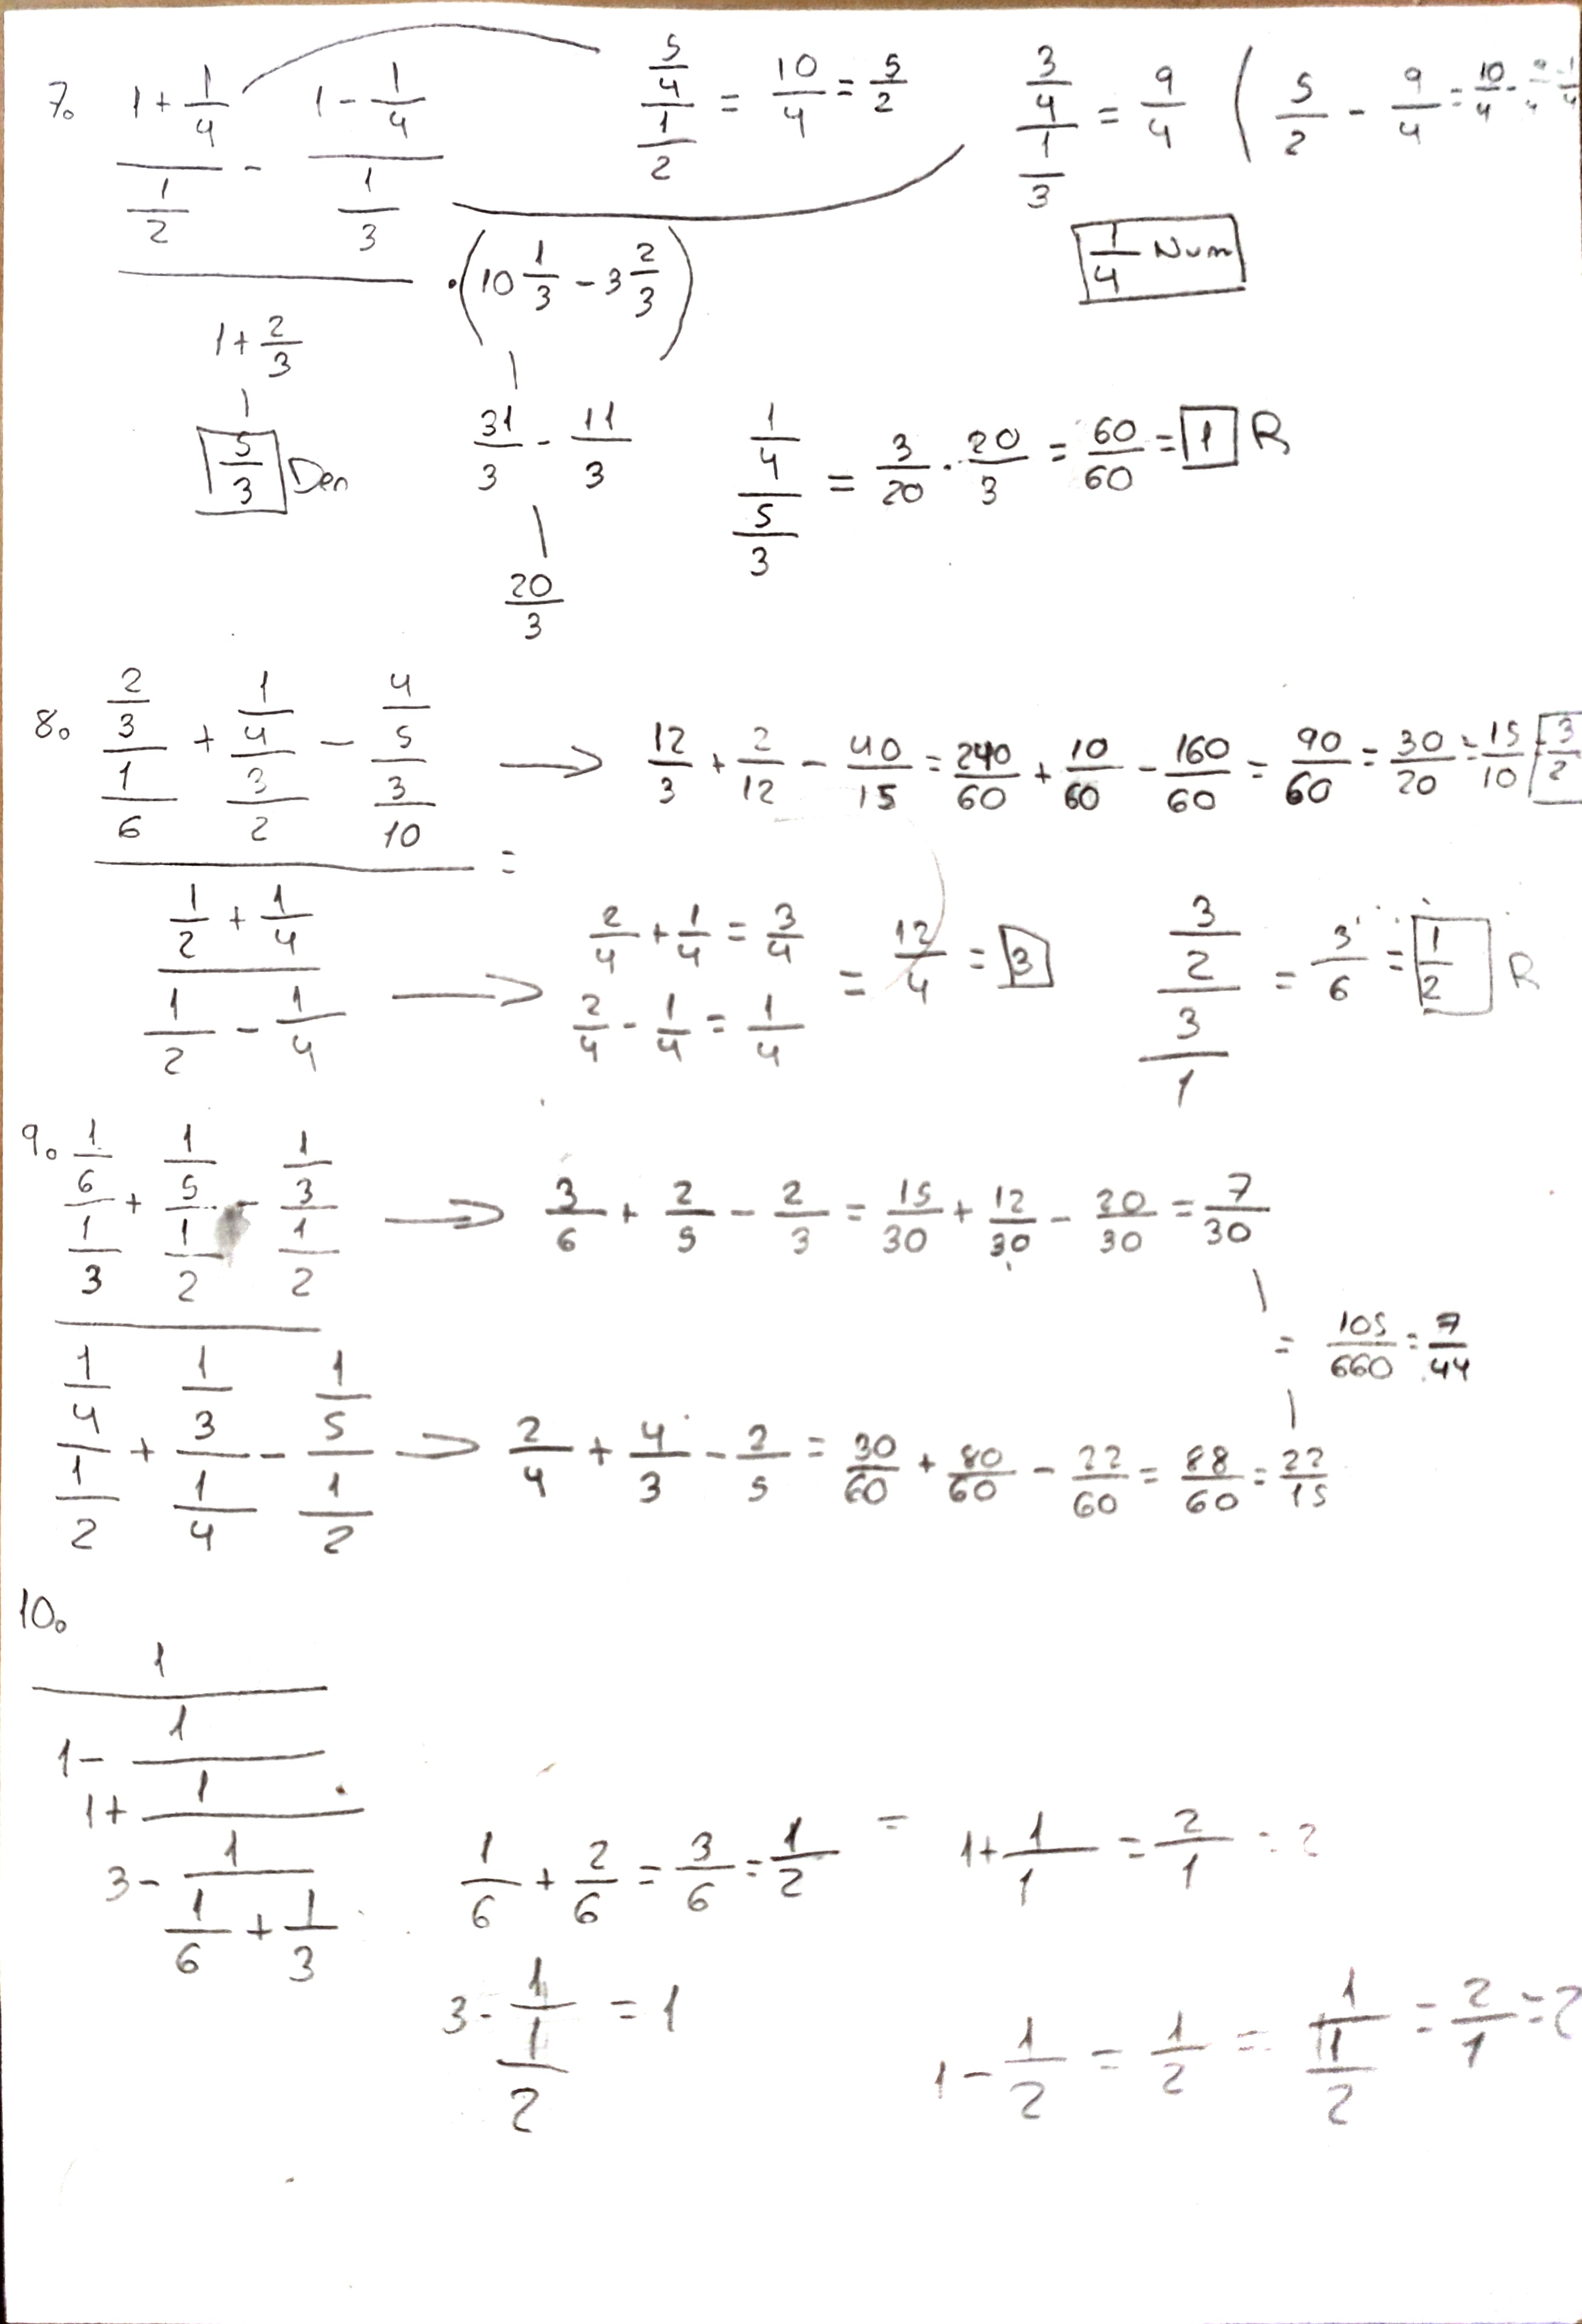 7. (((1 + 1/4)/(1/2)) - ((1 - 1/4)/(1/3)))/(1 + 2/3) · (10 1/3 - 3 2/3)
(5/4)/(1/2) = 10/4 = 5/2
(3/4)/(1/3) = 9/4 ( 5/2 - 9/4 = 10/4 - 9/4 = 1/4
1/4 Num
5/3 Den
31/3 - 11/3
20/3
(1/4)/(5/3) = 3/20 · 20/3 = 60/60 = 1 R
8. ((2/3)/(1/6) + (1/4)/(3/2) - (4/5)/(3/10))/((1/2 + 1/4)/(1/2 - 1/4)) =
→ 12/3 + 2/12 - 40/15 = 240/60 + 10/60 - 160/60 = 90/60 = 30/20 = 15/10 = 3/2
→ 2/4 + 1/4 = 3/4
2/4 - 1/4 = 1/4
= 12/4 = 3
(3/2)/(3/1) = 3/6 = 1/2 R
9. ((1/6)/(1/3) + (1/5)/(1/2) - (1/3)/(1/2))/((1/4)/(1/2) + (1/3)/(1/4) - (1/5)/(1/2))
→ 3/6 + 2/5 - 2/3 = 15/30 + 12/30 - 20/30 = 7/30
= 105/660 = 7/44
→ 2/4 + 4/3 - 2/5 = 30/60 + 80/60 - 22/60 = 88/60 = 22/15
10.
1/(1 - 1/(1 + 1/(3 - 1/(1/6 + 1/3))))
1/6 + 2/6 = 3/6 = 1/2 = 1 + 1/1 = 2/1 = 2
3 - 1/(1/2) = 1
1 - 1/2 = 1/2 = 1/(1/2) = 2/1 = 2